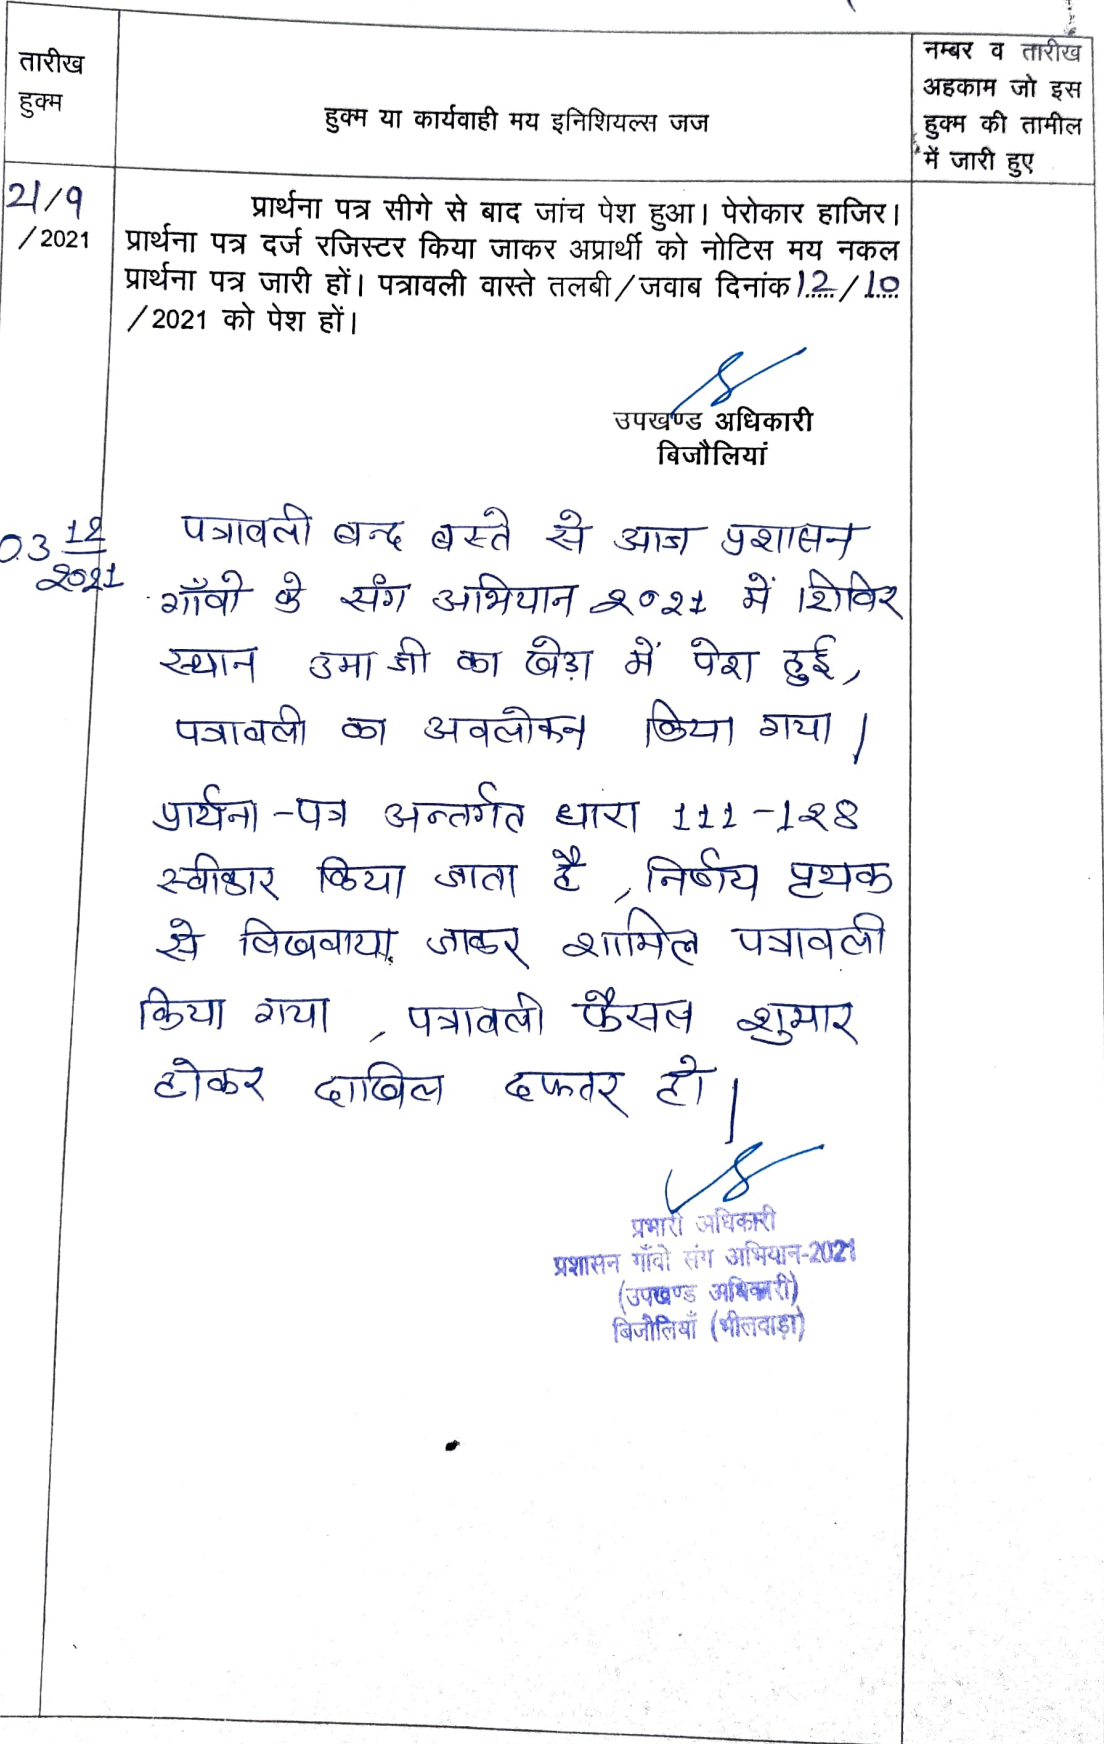 तारीख
हुक्म
हुक्म या कार्यवाही मय इनिशियल्स जज
नम्बर व तारीख
अहकाम जो इस
हुक्म की तामील
में जारी हुए
21/9
/2021
प्रार्थना पत्र सीगे से बाद जांच पेश हुआ। पेरोकार हाजिर।
प्रार्थना पत्र दर्ज रजिस्टर किया जाकर अप्रार्थी को नोटिस मय नकल
प्रार्थना पत्र जारी हों। पत्रावली वास्ते तलबी/जवाब दिनांक 12/10
/2021 को पेश हों।
उपखण्ड अधिकारी
बिजौलियां
03 12
२०२१
पत्रावली बन्द बस्ते से आज प्रशासन
गाँवो के संग अभियान २०२१ में शिविर
स्थान उमा जी का खेड़ा में पेश हुई,
पत्रावली का अवलोकन किया गया।
प्रार्थना-पत्र अन्तर्गत धारा १११-१२8
स्वीकार किया जाता है, निर्णय पृथक
से लिखवाया जाकर शामिल पत्रावली
किया गया, पत्रावली फैसल शुमार
होकर दाखिल दफतर हो।
प्रभारी अधिकारी
प्रशासन गाँवो संग अभियान-2021
(उपखण्ड अधिकारी)
बिजोलियाँ (भीलवाड़ा)